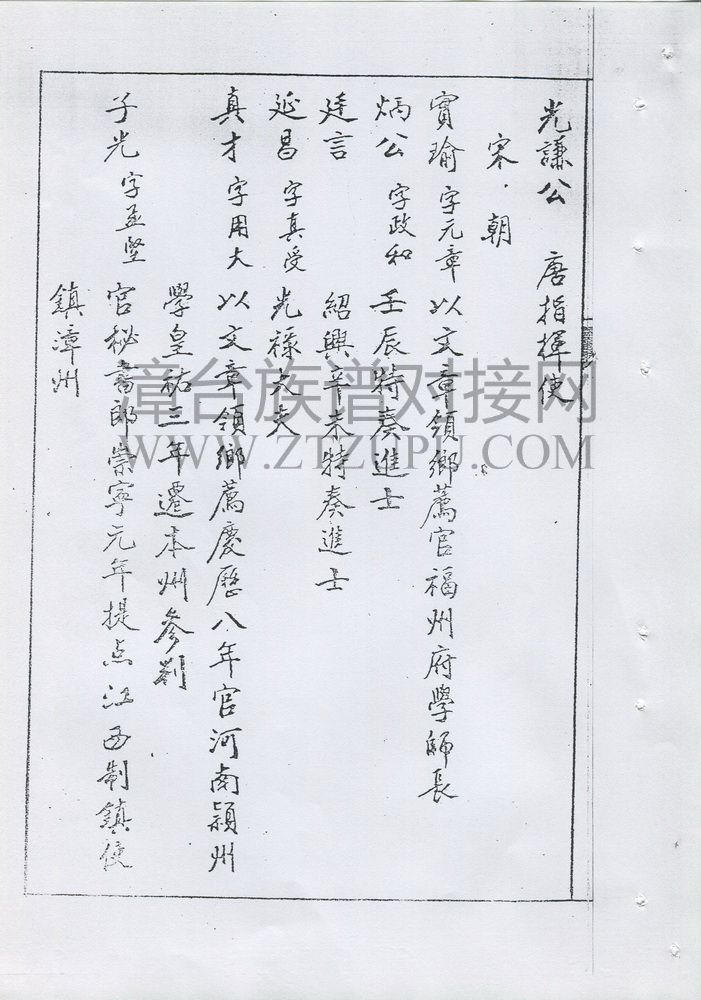 光謙公 唐指揮使
宋.朝
實瑜 字元章 以文章領鄉薦官福州府學師長
炳公 字政和 壬辰特奏進士
廷言 紹興辛未特奏進士
延昌 字真受 光祿大夫
真才 字用大 以文章領鄉薦慶歷八年官河南潁州
學皇祐三年遷本州參判
子光 字孟堅 官秘書郎崇寧元年提点江西制鎮使
鎮漳州
漳台族谱对接网
WWW.ZTZUPU.COM